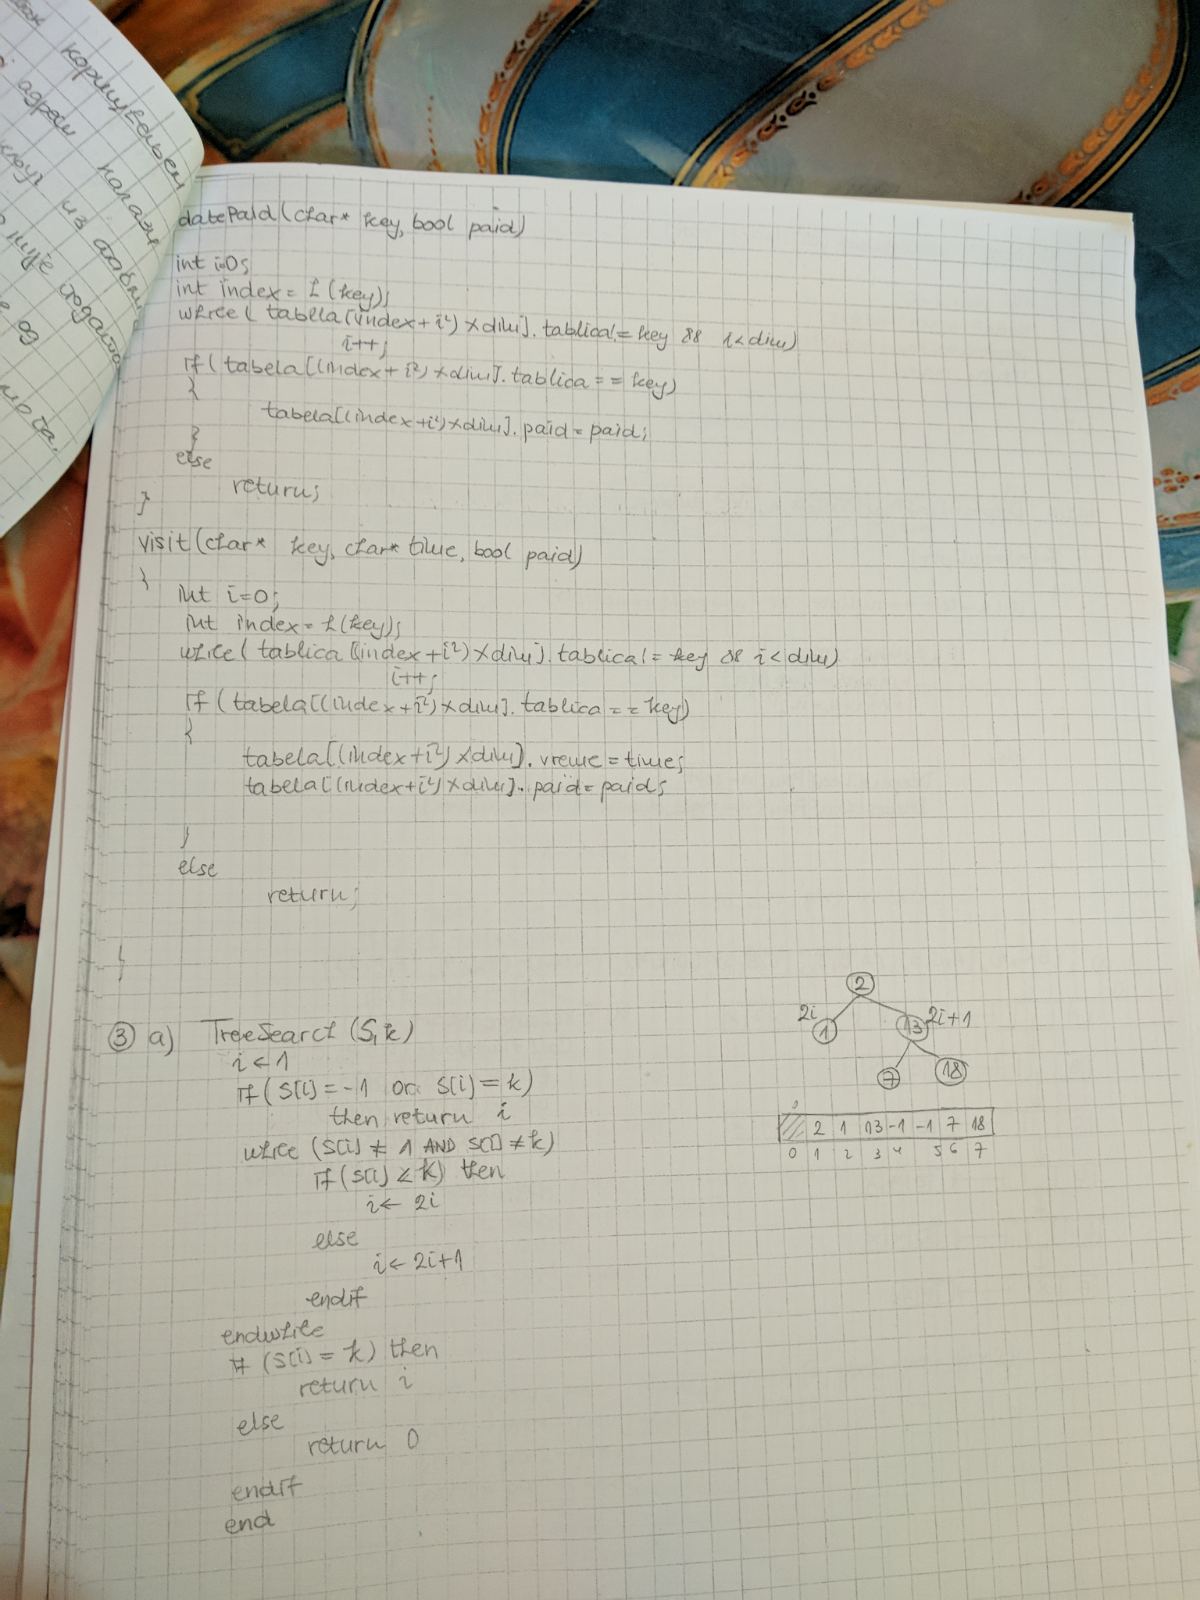 коришћењем
адреси налази
кључ из
datePaid(char* key, bool paid)
int i=0;
int index = h(key);
while( tabela[(index+i²)%dim].tablica!=key && i<dim)
i++;
if( tabela[(index+i²)%dim].tablica==key)
{
tabela[(index+i²)%dim].paid=paid;
}
else
return;
}
visit(char* key, char* time, bool paid)
{
int i=0;
int index=h(key);
while( tablica[(index+i²)%dim].tablica!=key && i<dim)
i++;
if(tabela[(index+i²)%dim].tablica==key)
{
tabela[(index+i²)%dim].vreme=time;
tabela[(index+i²)%dim].paid=paid;
}
else
return;
}
3 a) TreeSearch (S,k)
i←1
if(S[i]=-1 or S[i]=k)
then return i
while (S[i]≠1 AND S[i]≠k)
if(S[i]<k) then
i← 2i
else
i← 2i+1
endif
endwhile
if (S[i]=k) then
return i
else
return 0
endif
end
2
2i 1 13 2i+1
7 18
2 1 13 -1 -1 7 18
0 1 2 3 4 5 6 7